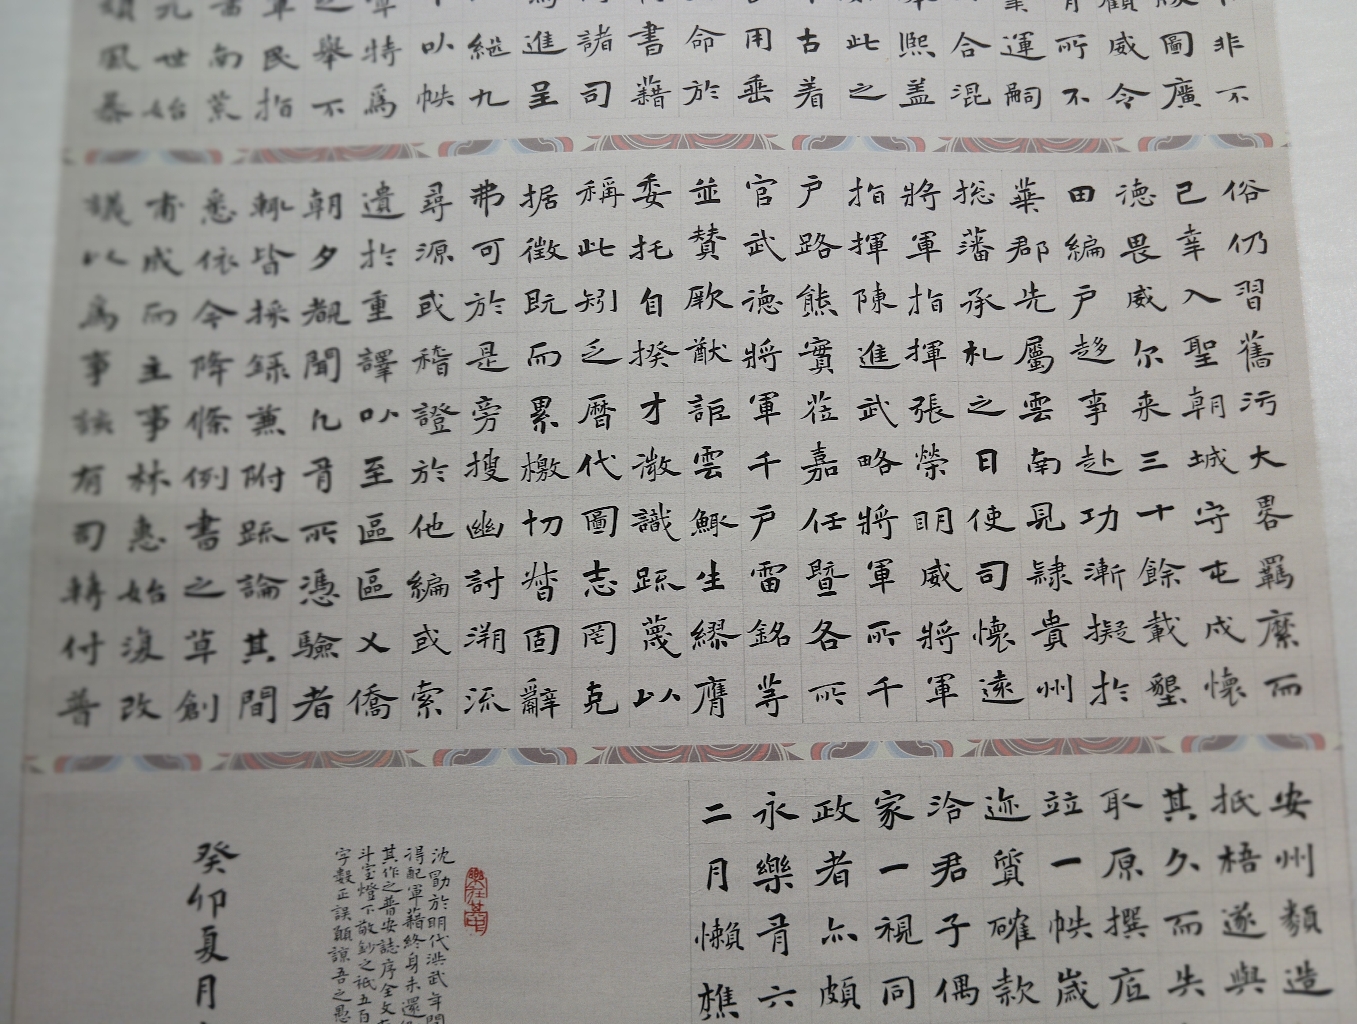 非不
圖廣
威令
所不
運嗣
合混
熙盖
此之
古着
用垂
命於
書藉
諸司
進呈
繼九
以帙
特爲
舉不
民指
向黨
世始
風暴
俗仍習舊污大畧羈縻而
己幸入聖朝城守屯戍懷
德畏威尔来三十餘載墾
田編戶趍事赴功漸擬於
華郡先屬雲南見隷貴州
揔藩承札之日使司懷遠
將軍指揮張榮明威將軍
指揮陳進武略將軍所千
戶路熊實莅嘉任暨各所
官武德將軍千戶雷銘等
並賛厥猷詎雲鯫生繆膺
委托自揆才澂識踈蔑以
稱此矧乏曆代圖志罔克
据徵既而累檄切督固辭
弗可於是旁搜幽討溯流
尋源或稽證於他編或索
遺於重譯以至區區乂僑
朝夕覩聞凡有所憑驗者
輒皆採錄兼附踈論其間
悉依令降條例書之草創
甫成而主事林惠始復改
議以爲事該有司轉付普
安州類造
抵梧遂與
其久而失
取原撰
竝一帙歲
迹質確款
洽君子偶
家一視同
政者亦頗
永樂有六
二月懶樵
沈勖於明代洪武年間
得配軍藉終身未還
其作之普安誌序全文
斗室燈下敬鈔之祗五百
字數正誤願諒吾之愚
癸卯夏月